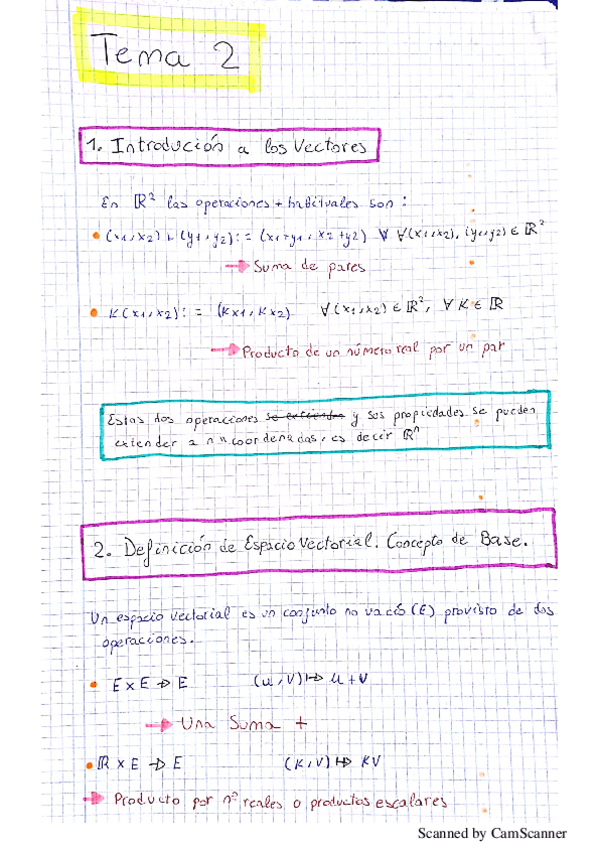 Tema 2
1. Introdución a los Vectores
En ℝ² las operaciones + habituales son:
• (x1,x2) + (y1,y2) := (x1+y1, x2+y2) ∀ ∀(x1,x2), (y1,y2) ∈ ℝ²
→ Suma de pares
• K(x1,x2) := (Kx1, Kx2) ∀(x1,x2) ∈ ℝ², ∀ K ∈ ℝ
→ Producto de un número real por un par
Estas dos operaciones se extienden y sus propiedades se pueden
extender a n coordenadas, es decir ℝⁿ
2. Definición de Espacio Vectorial. Concepto de Base.
Un espacio vectorial es un conjunto no vacío (E) provisto de dos
operaciones.
• E x E → E (u,v) ↦ u+v
→ Una Suma +
• ℝ x E → E (K,v) ↦ Kv
→ Producto por nº reales o productos escalares
Scanned by CamScanner